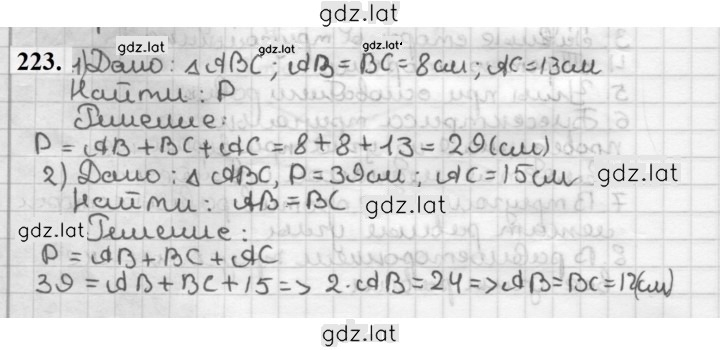 gdz.lat
223. 1) Дано: gdz.lat △ ABC; gdz.lat AB = BC = 8см; AC = 13см
Найти: P
gdz.lat
Решение:
P = AB + BC + AC = 8 + 8 + 13 = 29(см)
2) Дано: △ ABC, P = 39см; AC = 15см gdz.lat
Найти: AB = BC gdz.lat
gdz.lat Решение:
P = AB + BC + AC
39 = AB + BC + 15 => 2·AB = 24 => AB = BC = 12(см)
gdz.lat